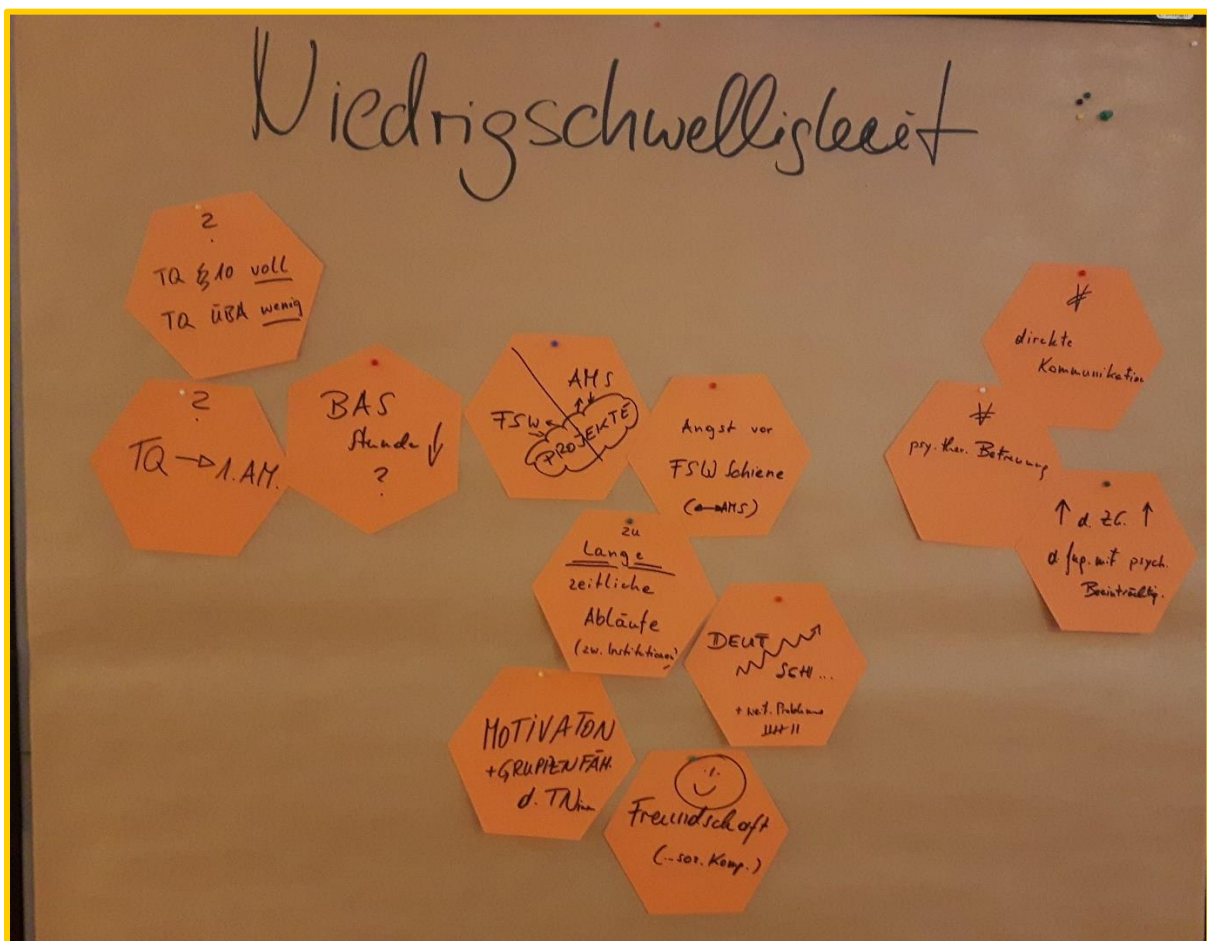 Niedrigschwelligkeit
?
TQ § 10 voll
TQ ÜBA wenig
?
TQ → 1. AM.
BAS
Stunden ↓
?
AMS
FSW
PROJEKTE
Angst vor
FSW Schiene
(↔AMS)
zu
Lange
zeitliche
Abläufe
(zw. Institutionen)
DEUT
SCH ...
+ weit. Probleme
MOTIVATON
+GRUPPENFÄH.
d. TNinnen
Freundschaft
(...soz. Komp.)
direkte
Kommunikation
psy. ther. Betreuung
↑ d. ZG. ↑
d. Jug. mit psych.
Beeinträchtig.